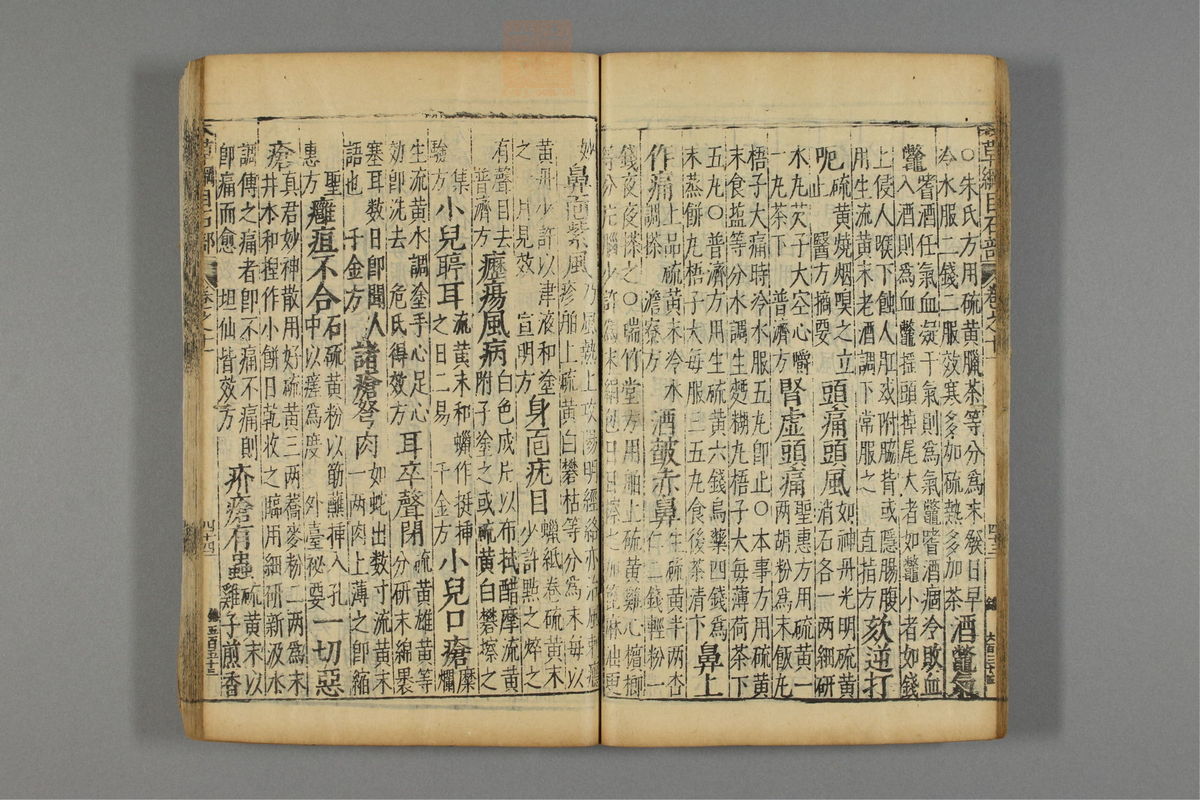 本草綱目石部 卷之十一 四十三
○朱氏方用硫黃臘茶等分為末發日早
冷水服二錢二服效寒多加硫熱多加茶
酒鱉氣
鱉
嗜酒任氣血凝于氣則為氣鱉嗜酒痼冷敗血
入酒則為血鱉搖頭掉尾大者如鱉小者如錢
上侵人喉下蝕人肛或附脇背或隱腸腹
用生流黃末老酒調下常服之 直指方
欬逆打
呃
硫黃燒烟嗅之立
止 醫方摘要
頭痛頭風
如神丹光明硫黃
消石各一兩細研
水丸芡子大空心嚼
一丸茶下 普濟方
腎虛頭痛
聖惠方用硫黃一
兩胡粉為末飯丸
梧子大痛時冷水服五丸即止○本事方用硫黃
末食盐等分水調生麪糊丸梧子大每薄荷茶下
五丸○普濟方用生硫黃六錢烏藥四錢為
末蒸餅丸梧子大每服三五丸食後茶清下
鼻上
作痛
上品硫黃末冷水
調搽 澹寮方
酒皶赤鼻
生硫黃半兩杏
仁二錢輕粉一
錢夜夜搽之○瑞竹堂方用舶上硫黃雞心檳榔
等分片腦少許為末絹包日日擦之加蓖麻油更
妙
鼻面紫風
乃風熱上攻陽明經絡亦治風刺癮
疹舶上硫黃白礬枯等分為末每以
黃丹少許以津液和塗
之一月見效 宣明方
身面疣目
蠟紙卷硫黃末
少許點之焠之
有聲自去
普濟方
癧瘍風病
白色成片以布拭醋摩流黃
附子塗之或硫黃白礬擦之
集
驗方
小兒聤耳
流黃末和蠟作挺插
之日二易 千金方
小兒口瘡
糜
爛
生流黃水調塗手心足心
効即洗去 危氏得效方
耳卒聲閉
硫黃雄黃等
分研末綿裹
塞耳數日即聞人
語也 千金方
諸瘡弩肉
如蛇出數寸流黃末
一兩肉上薄之即縮
聖
惠方
癰疽不合
石硫黃粉以筯蘸插入孔
中以瘥為度 外臺秘要
一切惡
瘡
真君妙神散用好硫黃三兩蕎麥粉二兩為末
井水和捏作小餅日乾收之臨用細研新汲水
調傅之痛者即不痛不痛則
即痛而愈 坦仙皆效方
疥瘡有蟲
硫黃末以
雞子煎香
本草綱目石部 卷之十一 四十四